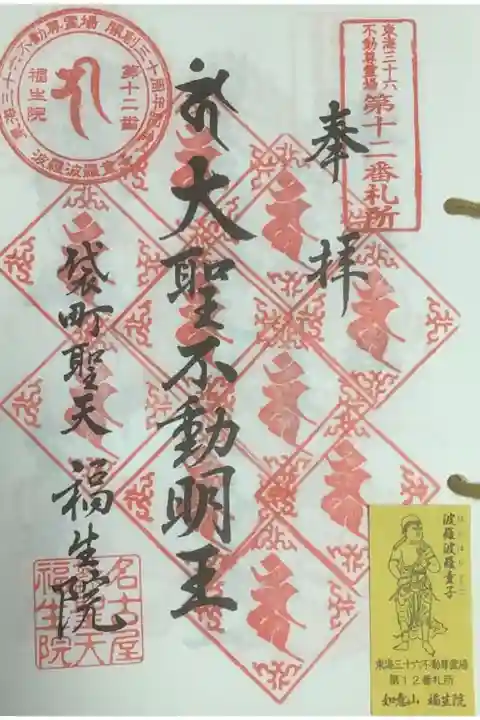 東海三十六
不動尊霊場
第十二番札所
奉拝
大聖不動明王
袋町聖天 福生院
東海三十六不動尊霊場 開創三十周年
第十二番
福生院
波羅波羅童子
名古屋
福生院
波羅波羅童子
はらはらどうじ
東海三十六不動尊霊場
第12番札所
如意山 福生院